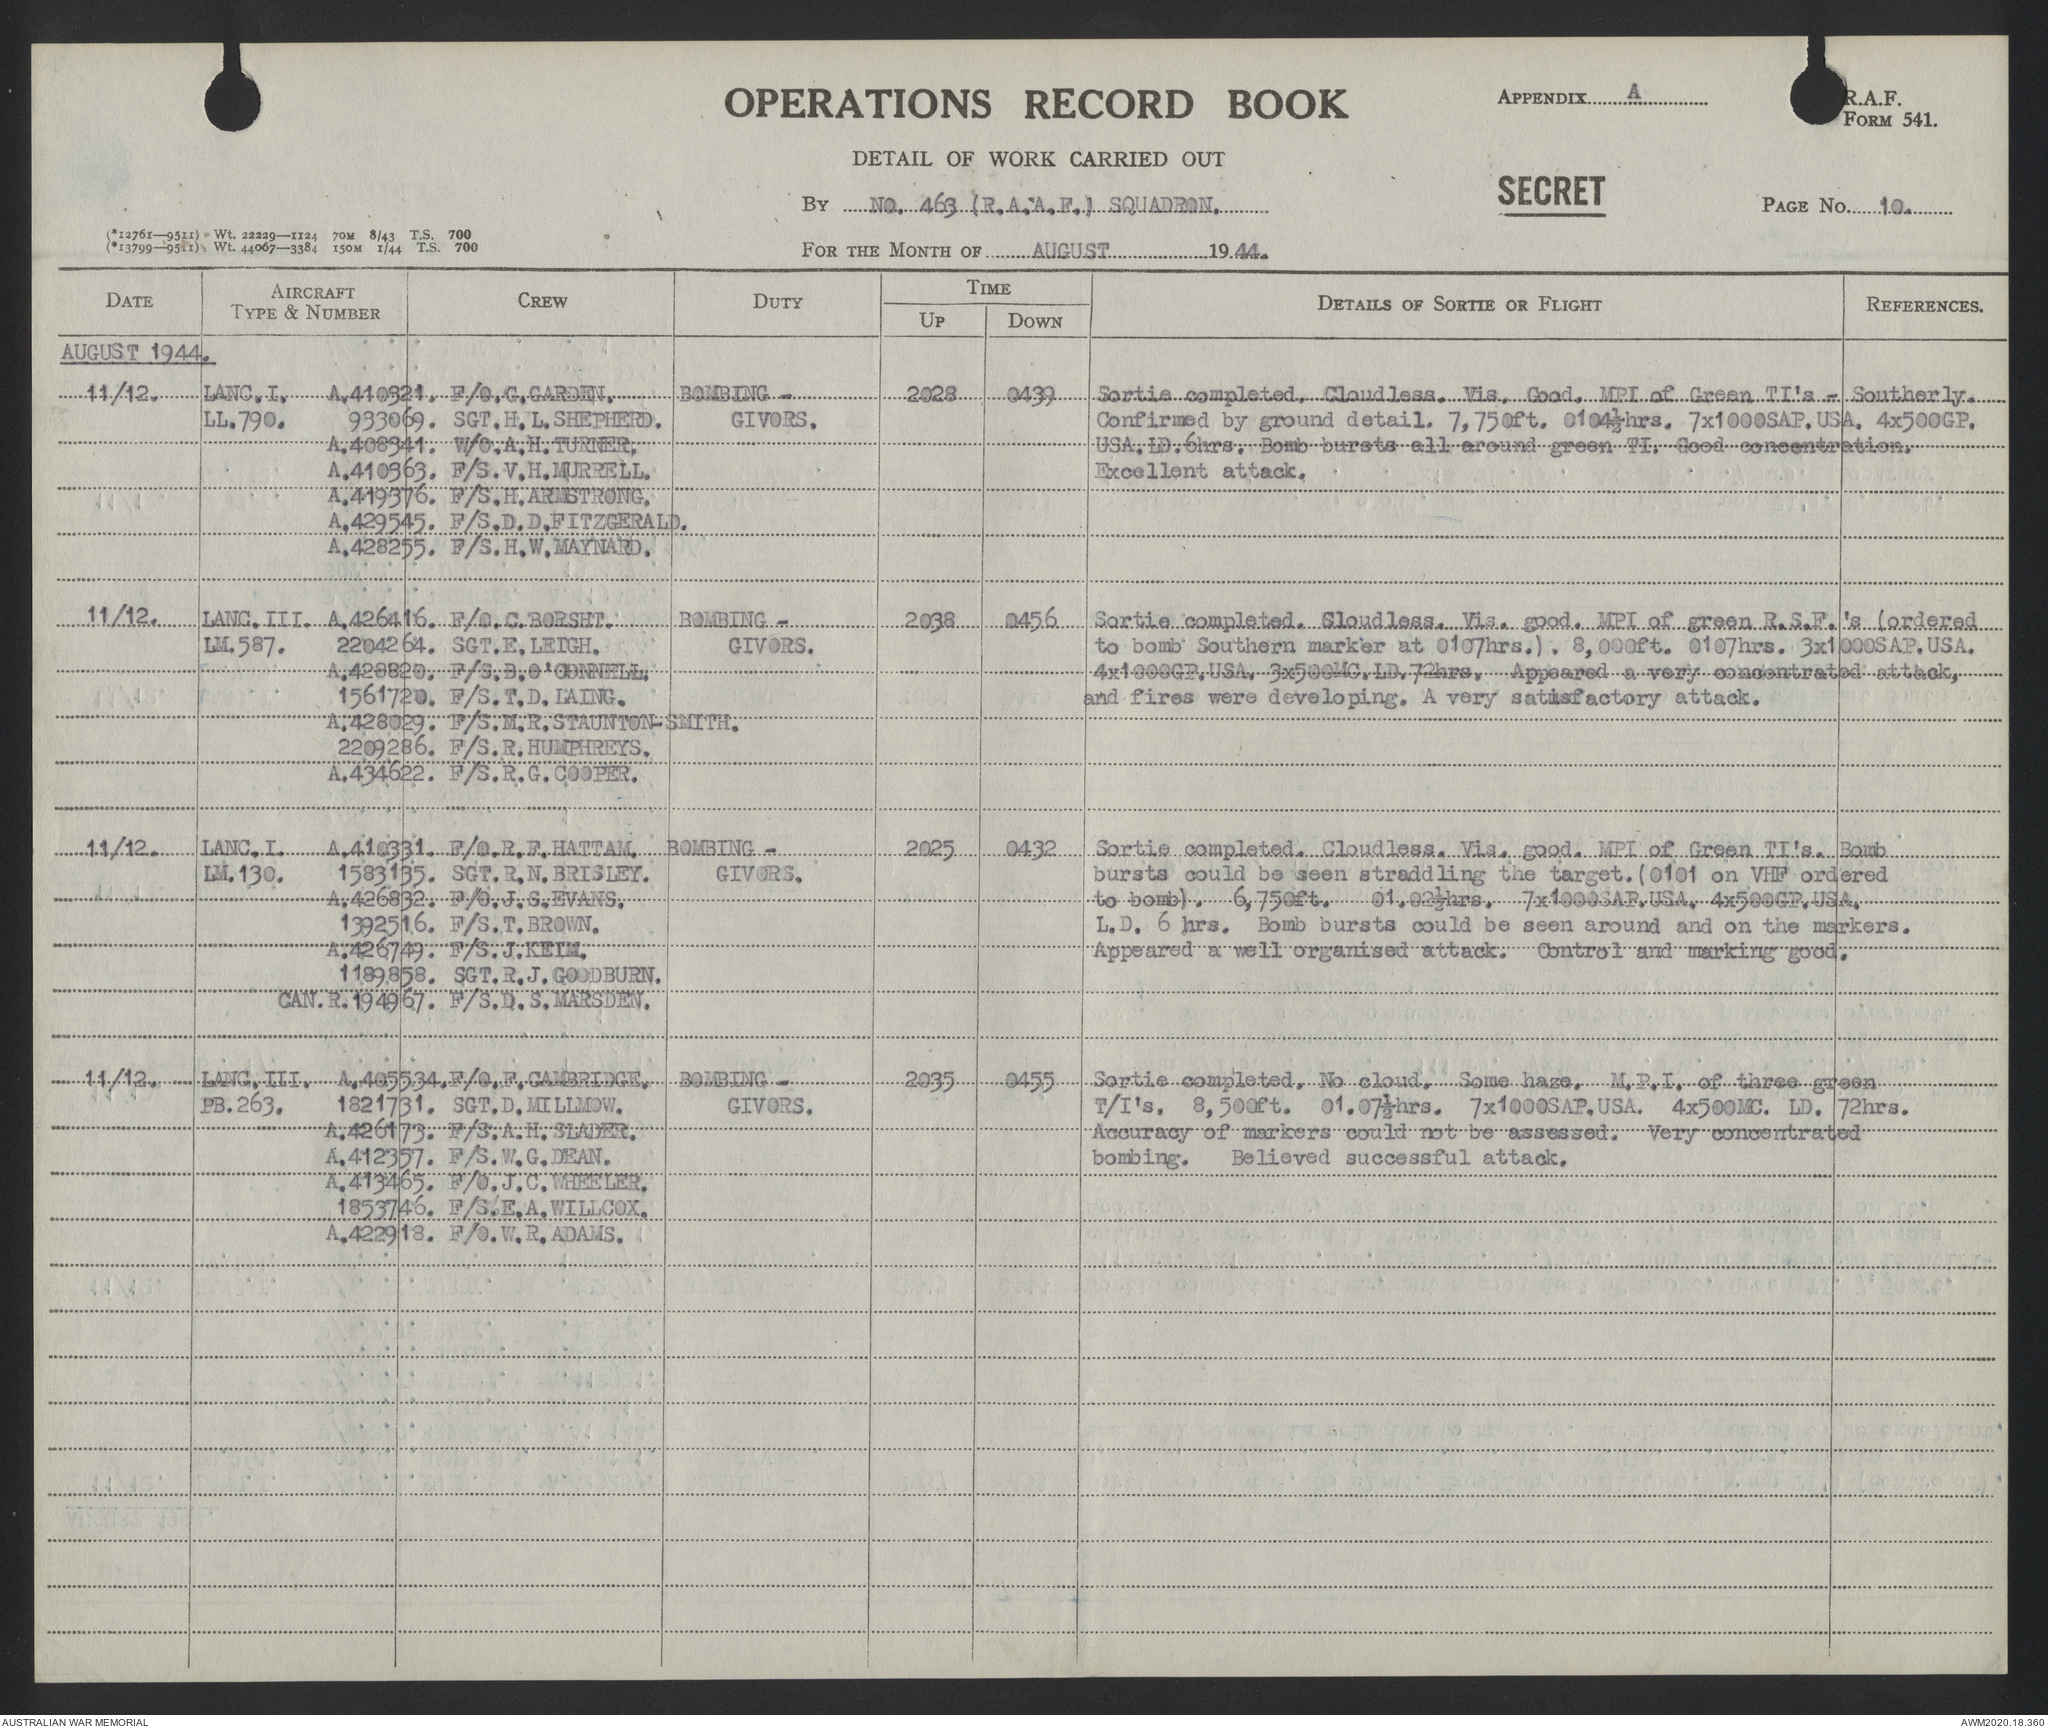 OPERATIONS RECORD BOOK
APPENDIX A
R.A.F.
FORM 541.
DETAIL OF WORK CARRIED OUT
SECRET
BY NO. 463 (R.A.A.F.) SQUADRON.
PAGE NO. 10.
(*12761—9511) Wt. 22229—1124 70M 8/43 T.S. 700
(*13799—9511) Wt. 44067—3384 150M 1/44 T.S. 700
FOR THE MONTH OF AUGUST 1944.
DATE AIRCRAFT TYPE & NUMBER CREW DUTY TIME UP DOWN DETAILS OF SORTIE OR FLIGHT REFERENCES.
AUGUST 1944.
11/12. LANC.I. A.410321. F/O.G.GARDEN. BOMBING - 2028 0439 Sortie completed. Cloudless. Vis. Good. MPI of Green TI's - Southerly.
LL.790. 933069. SGT.H.L.SHEPHERD. GIVORS. Confirmed by ground detail. 7,750ft. 0104½hrs. 7x1000SAP.USA. 4x500GP.
A.408341. W/O.A.H.TURNER. USA.LD.6hrs. Bomb bursts all around green TI. Good concentration.
A.410363. F/S.V.H.MURRELL. Excellent attack.
A.419376. F/S.H.ARMSTRONG.
A.429545. F/S.D.D.FITZGERALD.
A.428255. F/S.H.W.MAYNARD.
11/12. LANC.III. A.426416. F/O.C.BORSHT. BOMBING - 2038 0456 Sortie completed. Sloudless. Vis. good. MPI of green R.S.F.'s (ordered
LM.587. 2204264. SGT.E.LEIGH. GIVORS. to bomb Southern marker at 0107hrs.). 8,000ft. 0107hrs. 3x1000SAP.USA.
A.428820. F/S.B.O'CONNELL. 4x1000GP.USA. 3x500MC.LD.72hrs. Appeared a very concentrated attack,
1561720. F/S.T.D.LAING. and fires were developing. A very satisfactory attack.
A.428029. F/S.M.R.STAUNTON-SMITH.
2209286. F/S.R.HUMPHREYS.
A.434622. F/S.R.G.COOPER.
11/12. LANC.I. A.410331. F/O.R.F.HATTAM. BOMBING - 2025 0432 Sortie completed. Cloudless. Vis. good. MPI of Green TI's. Bomb
LM.130. 1583135. SGT.R.N.BRISLEY. GIVORS. bursts could be seen straddling the target.(0101 on VHF ordered
A.426832. F/O.J.S.EVANS. to bomb). 6,750ft. 01.02½hrs. 7x1000SAP.USA. 4x500GP.USA.
1392516. F/S.T.BROWN. L.D. 6 hrs. Bomb bursts could be seen around and on the markers.
A.426749. F/S.J.KEIM. Appeared a well organised attack. Control and marking good.
1189858. SGT.R.J.GOODBURN.
CAN.R.194967. F/S.D.S.MARSDEN.
11/12. LANC.III. A.405534. F/O.F.CAMBRIDGE. BOMBING - 2035 0455 Sortie completed. No cloud. Some haze. M.P.I. of three green
PB.263. 1821731. SGT.D.MILLMOW. GIVORS. T/I's. 8,500ft. 01.07½hrs. 7x1000SAP.USA. 4x500MC. LD. 72hrs.
A.426173. F/S.A.H.SLADER. Accuracy of markers could not be assessed. Very concentrated
A.412357. F/S.W.G.DEAN. bombing. Believed successful attack.
A.413465. F/O.J.C.WHEELER.
1853746. F/S.E.A.WILLCOX.
A.422918. F/O.W.R.ADAMS.
AUSTRALIAN WAR MEMORIAL
AWM2020.18.360